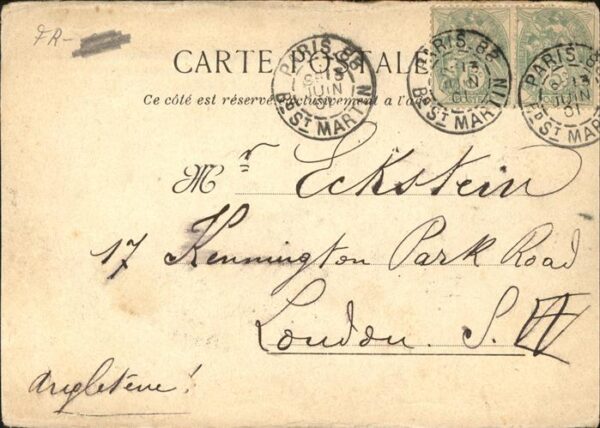 FR-
CARTE POSTALE
Ce côté est réservé exclusivement a l'a
PARIS. 88 13 JUIN 01 Bd ST MARTIN
PARIS. 88 13 JUIN 01 Bd ST MARTIN
PARIS. 88 JUIN 01 Bd ST MARTIN
Mr Eckstein
17 Kennington Park Road
London. S.W
Angleterre!